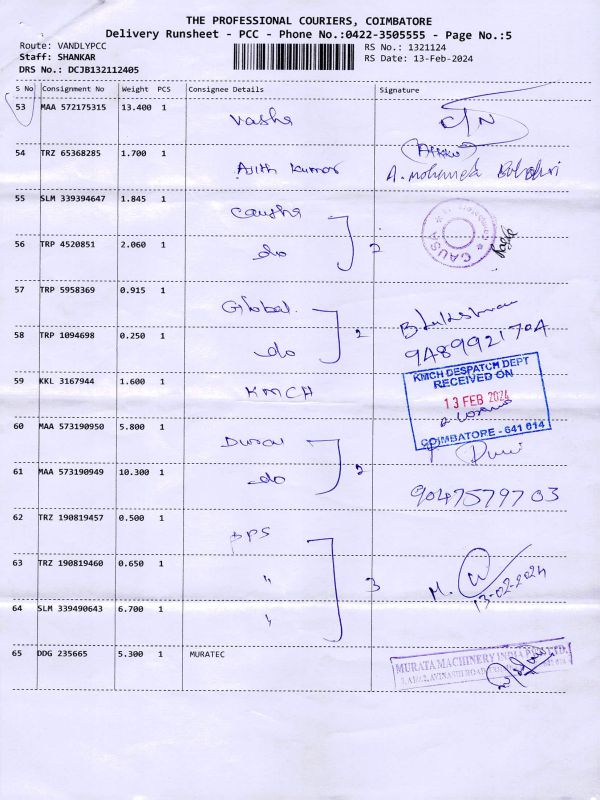 THE PROFESSIONAL COURIERS, COIMBATORE
Delivery Runsheet - PCC - Phone No.:0422-3505555 - Page No.:5
Route: VANDLYPCC RS No.: 1321124
Staff: SHANKAR RS Date: 13-Feb-2024
DRS No.: DCJB132112405
S No Consignment No Weight PCS Consignee Details Signature
53 MAA 572175315 13.400 1 Vasha C/N
54 TRZ 65368285 1.700 1 Ajith Kumar
A. Mohamed
55 SLM 339394647 1.845 1 Causha
56 TRP 4520851 2.060 1 do 2
CAUS
57 TRP 5958369 0.915 1 Global.
58 TRP 1094698 0.250 1 do 2 9489921704
59 KKL 3167944 1.600 1 KMCH
KMCH DESPATCH DEPT
RECEIVED ON
13 FEB 2024
COIMBATORE - 641 014
60 MAA 573190950 5.800 1 Durai
61 MAA 573190949 10.300 1 do 2 9047579703
62 TRZ 190819457 0.500 1 PPS
63 TRZ 190819460 0.650 1 " 3 M.
13-02-2024
64 SLM 339490643 6.700 1 "
65 DDG 235665 5.300 1 MURATEC
MURATA MACHINERY INDIA PVT. LTD.
AVINASHI ROAD